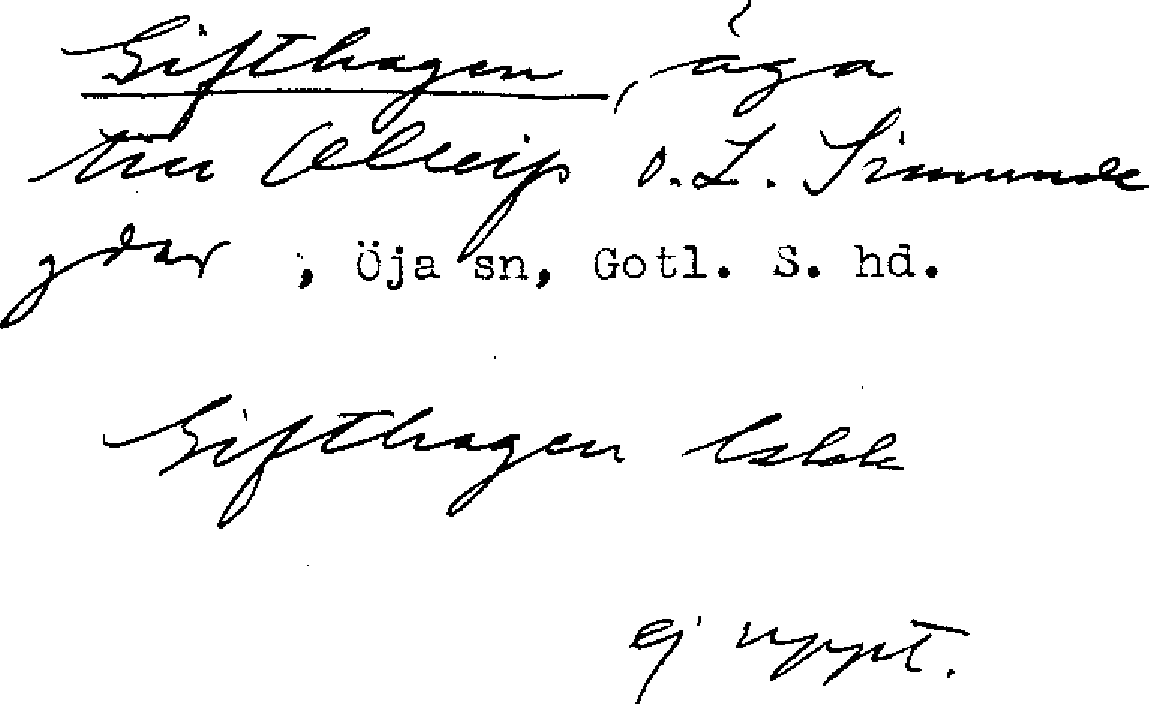 Gifthagen, äga
till Olleifs o. L. Simunde
gdar, Öja sn, Gotl. S. hd.
Gifthagen lskk
ej uppt.